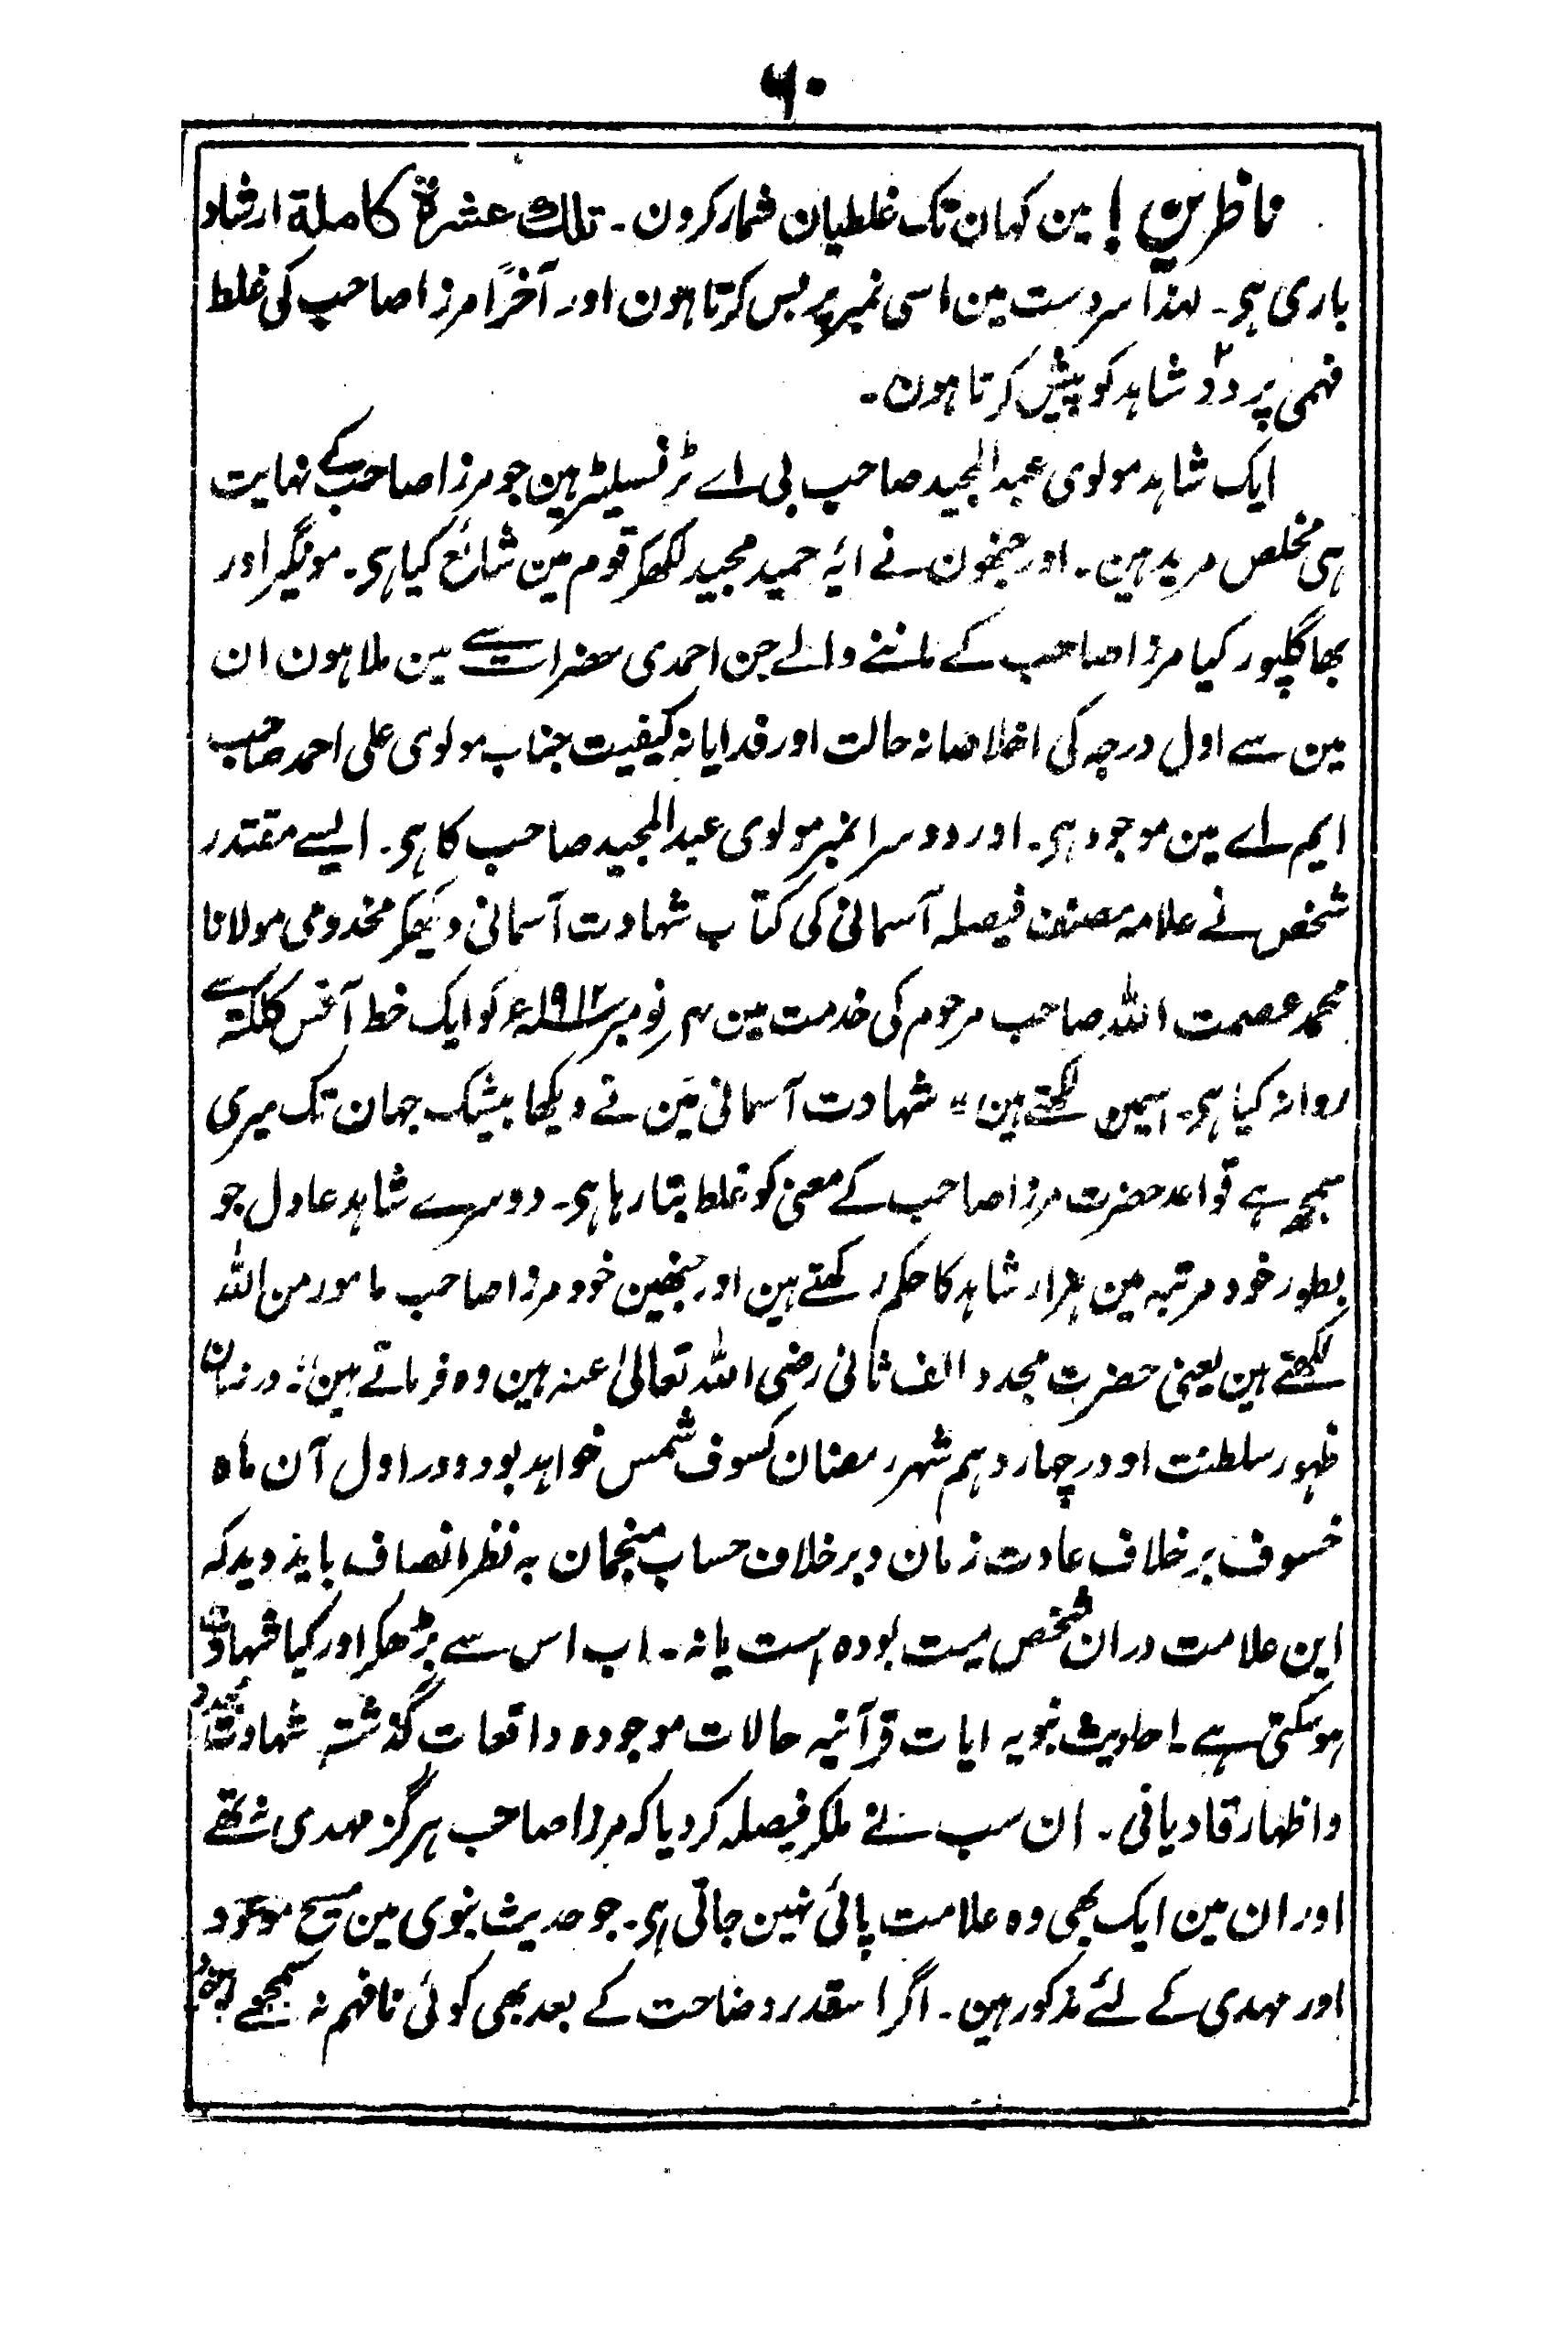 ۶۰
ناظرین! مین کہان تک غلطیان شمار کرون۔ تلک عشرۃ کاملۃ ارشاد
باری ہی۔ لہذا سردست مین اسی نمبر پر بس کرتا ہون اور آخراً مرزا صاحب کی غلط
فہمی پر دو شاہد کو پیش کرتا ہون۔
ایک شاہد مولوی عبدالمجید صاحب بی اے ٹرنسلیٹر ہین جو مرزا صاحب کے نہایت
ہی مخلص مرید ہین۔ اور جنھون نے ایہ حمید مجید لکھکر قوم مین شائع کیا ہی۔ مونگیر اور
بھاگلپور کیا مرزا صاحب کے ماننے والے جن احمدی حضرات سے مین ملا ہون ان
مین سے اول درجہ کی اخلاصانہ حالت اور فدایانہ کیفیت جناب مولوی علی احمد صاحب
ایم اے مین موجود ہی۔ اور دوسرا نمبر مولوی عبدالمجید صاحب کا ہی۔ ایسے مقتدر
شخص نے علامہ مصنف فیصلہ آسمانی کی کتاب شہادت آسمانی دیکھکر مخدومی مولانا
محمد عصمت اللہ صاحب مرحوم کی خدمت مین ۴ نومبر ۱۹۱۲ء کو ایک خط آفس کلکتہ سے
روانہ کیا ہی۔ اسمین لکھتے ہین " شہادت آسمانی مین نے دیکھا بیشک جہان تک میری
سمجھ ہے قواعد حضرت مرزا صاحب کے معنی کو غلط بتا رہا ہی۔ دوسرے شاہد عادل جو
بطور خود مرتبہ مین ہزار شاہد کا حکم رکھتے ہین اور جنھین خود مرزا صاحب مامور من اللہ
لکھتے ہین یعنی حضرت مجدد الف ثانی رضی اللہ تعالیٰ عنہ ہین وہ فرماتے ہین " در زمان
ظہور سلطنت او در چہاردہم شہر رمضان کسوف شمس خواہد بود و در اول آن ماہ
خسوف بر خلاف عادت زمان و بر خلاف حساب منجمان بہ نظر انصاف باید دید کہ
این علامت دران شخص میت بودہ است یا نہ۔ اب اس سے بڑھکر اور کیا شہادت
ہوسکتی ہے۔ احادیث نبویہ ایات قرآنیہ حالات موجودہ واقعات گذشتہ شہادت مجدد
و اظہار قادیانی۔ ان سب نے ملکر فیصلہ کردیا کہ مرزا صاحب ہرگز مہدی نہ تھے
اور ان مین ایک بھی وہ علامت پائی نہین جاتی ہی۔ جو حدیث نبوی مین مسیح موعود
اور مہدی کے لئے مذکور ہین۔ اگر اسقدر وضاحت کے بعد بھی کوئی نافہم نہ سمجھے